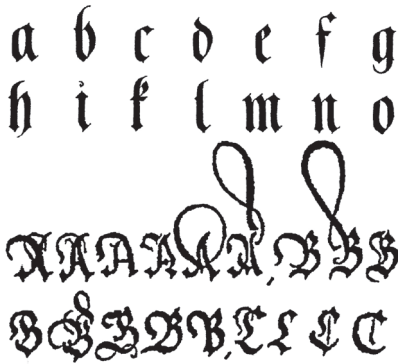 a b c d e f g
h i k l m n o
A A A A A A B B B
B B B B B C C C C